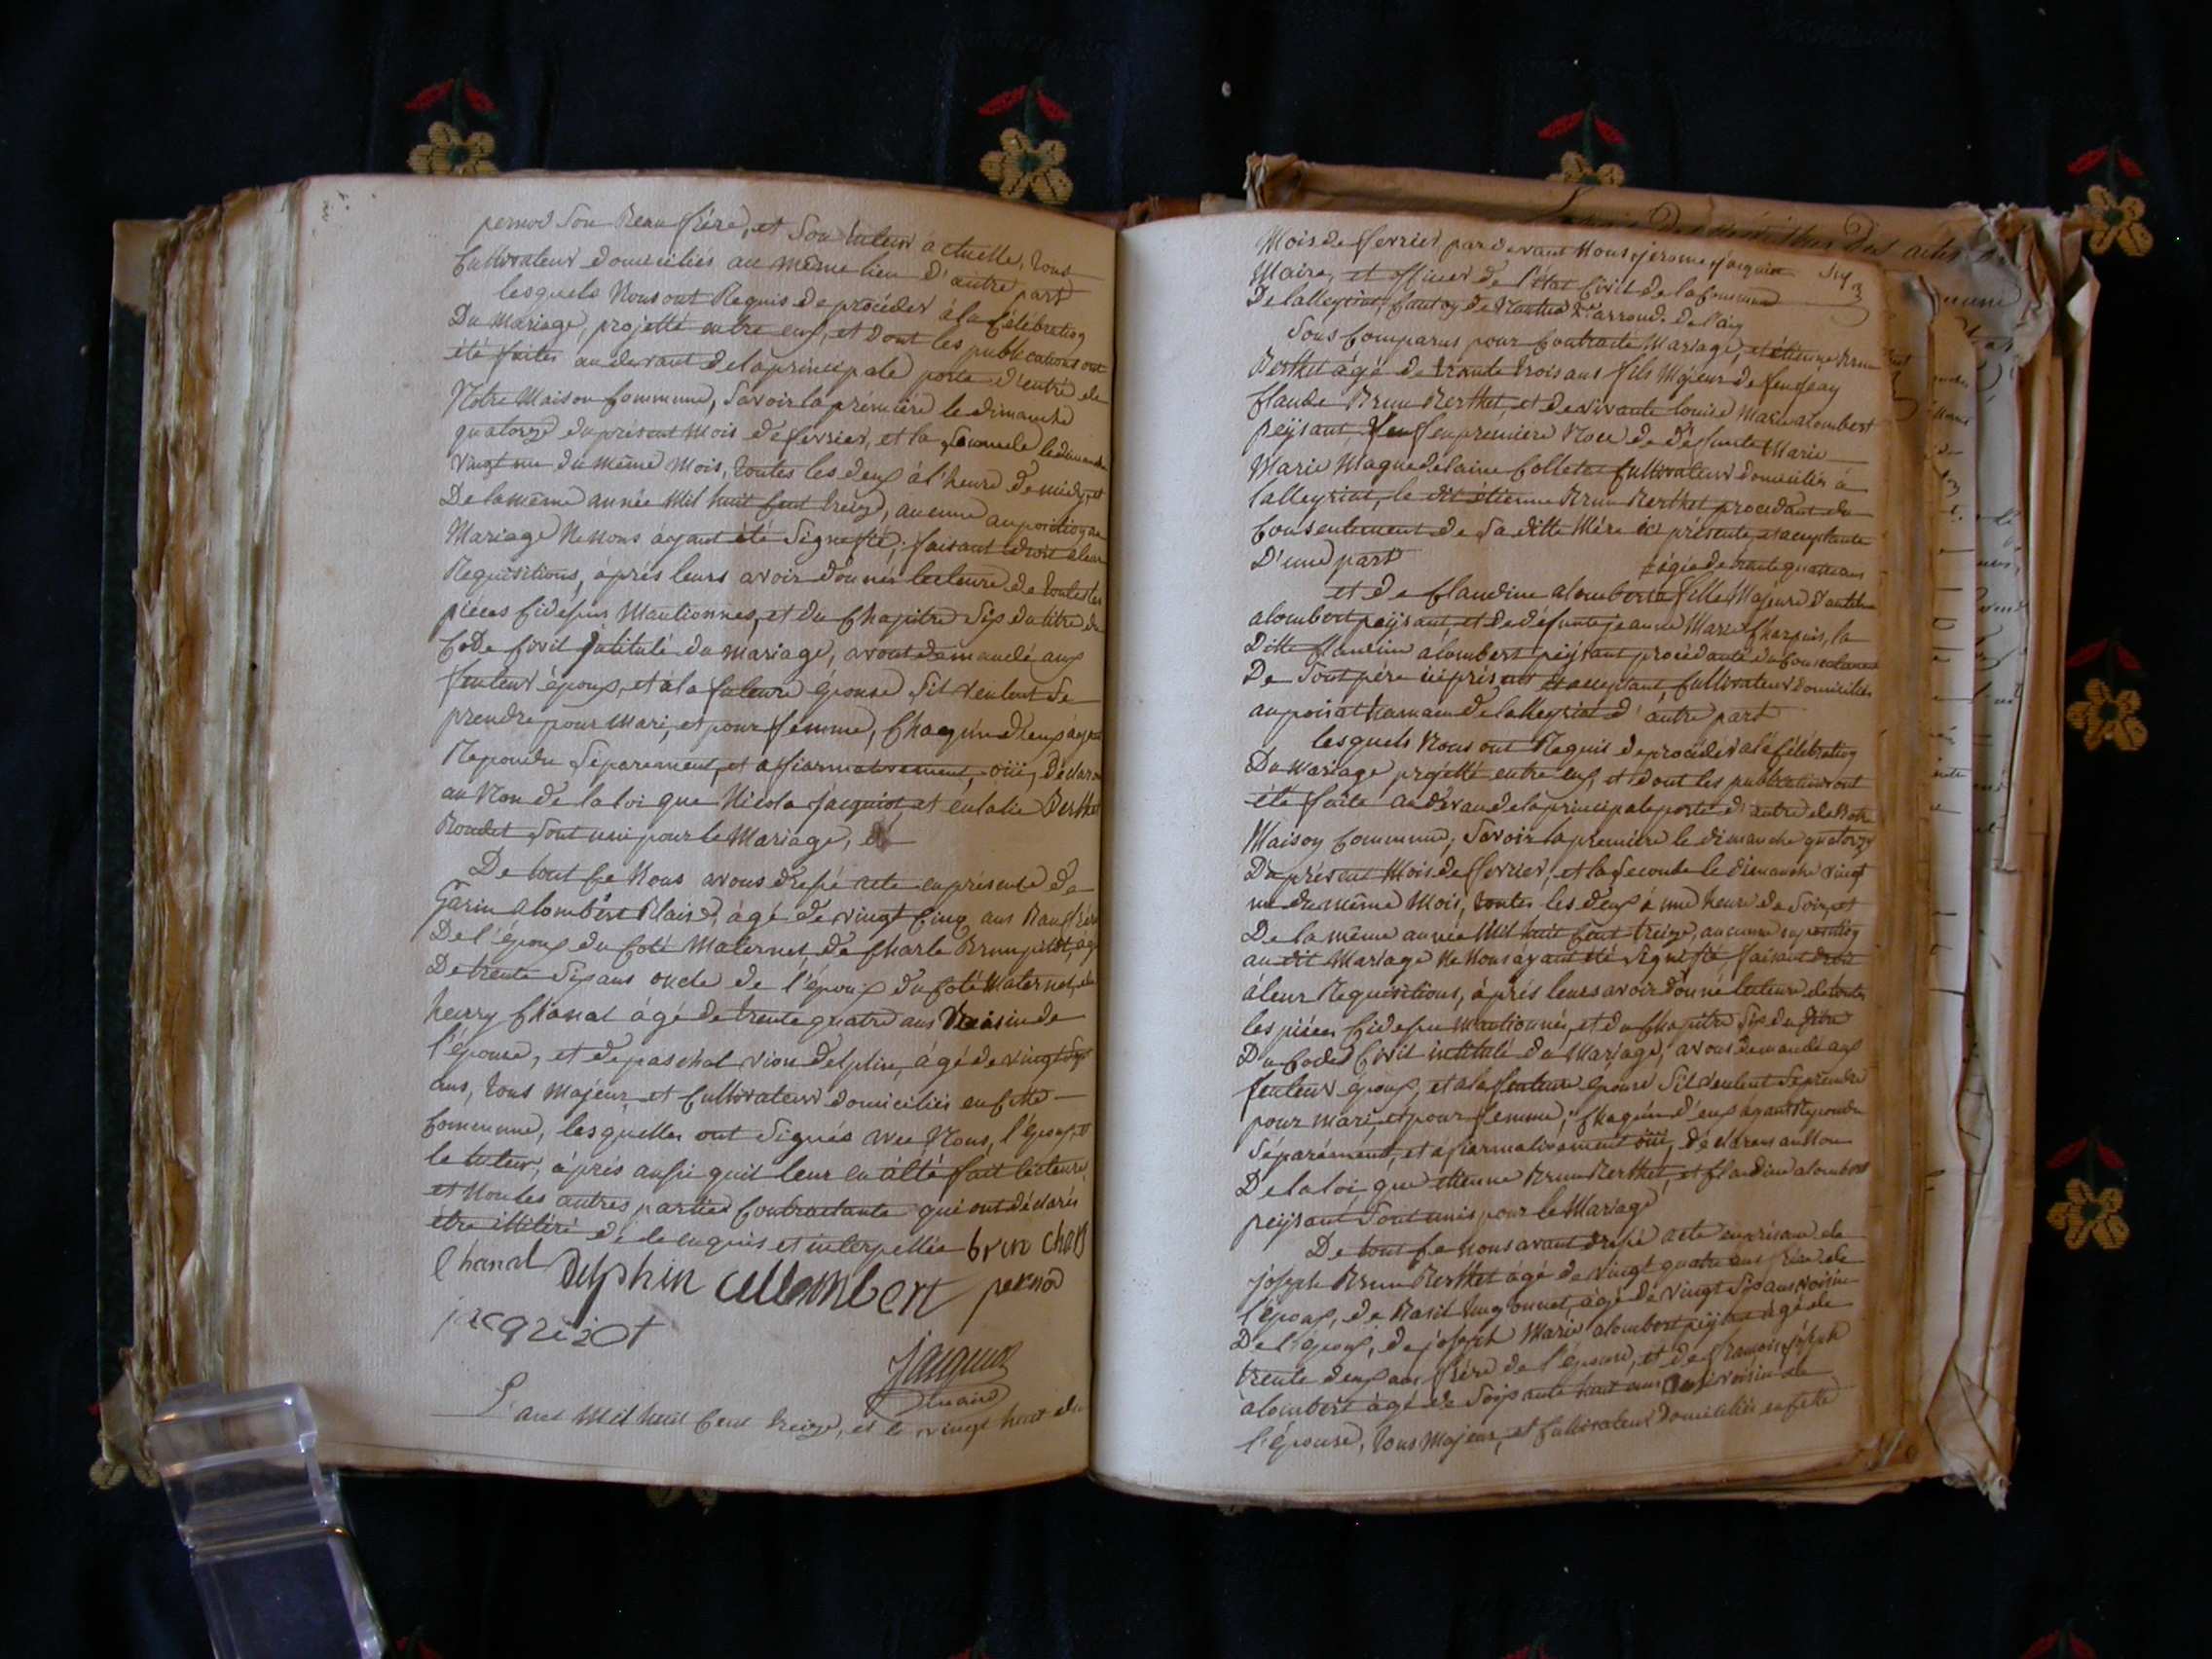 pernod Son Beau frére, et Son tuteur actuelle, tous
Cultivateur domiciliés au même lieu d'autre part
lesquels Nous ont Requis de procéder à la Célébration
Du Mariage, projetté entre eux, et dont les publications ont
été faites au devant de la principale porte d'entré de
Notre Maison Commune, Savoir la prémiére le dimanche
quatorze du présent Mois de fevrier, et la Seconde le dimanche
vingt un du même Mois, toutes les deux à l'heure de midy, et
De la même année Mil huit Cent treize, aucune auposition au
Mariage Ne Nous áyant été Signifié, faisant droit à leur
Requisitions, áprés leurs avoir donnés lecteure de toutes les
piéces Cidesus Mantionnés, et du Chapitre Six du titre du
Code Civil Intitulé du mariage, avons demandé aux
feuteur époux, et à la futeure épouse Sil veulent Se
prendre pour Mari, et pour femme, Chaqún d'eux áyant
Repondu Séparement, et affiarmativement, oüi, déclarons
au Non de la loi que Nicola Jacquiot, et eulalie Berthet
Rondet Sont uni pour le Mariage, et
De tout Ce Nous avons dressé acte en présence de
Garin alombert Blaise, ágé de vingt Cinq ans Beau frére
De l'époux du Coté Maternel, de Charle Brun perrod, ágé
De trente Six ans oncle de l'époux du Coté Maternel, de
henry Chanal ágé de trente quatre ans Voisin de
l'épouse, et de paschal vion delphin, ágé de vingt Six
ans, tous majeur et Cultivateur domiciliés en Cette
Commune, lesquelles ont Signés avec Nous, l'époux, et
le tuteur, áprés aussi quil leur en á été fait lecteure,
et Non les autres parties Contractante qui ont déclarés
être illitéré de ce enquis et interpellée brun charl
Chanal Delphin allombert pernod
jacqziot
Jacquiot
maire
L'ans Mil huit Cent treize, et le vingt huit du
Mois de fevrier par devant Nous jerome jacquiot
Maire, et officier de l'état Civil de la Commune
De lalleyriat, Canton de Nantua
Sont Comparus pour Contracté Mariage, étienne Brun
Berthet ágé de trente trois ans fils Majeur de feu jean
Claude Brun Berthet, et de vivante louise Marie alombert
peijsant, veuf en premiere Noce de défunte Marie
Marie Magnedelaine Collet Cultivateur domiciliés á
lalleyriat, le dit étienne Brun Berthet procedant du
Consentement de Sa ditte Mére ici présente, et aceptante
D'une part ágée de trente quatre ans
et de Claudine alombert fille Majeure d'
alombert peijsant, et de défunte jeanne Marie Charpuis, la
Ditte Claudine alombert peijsant procédante du Consentement
De Sont pére ici présent et acceptant, Cultivateur domiciliés
au poisat hamau de lalleyriat d'autre part
lesquels Nous ont Requis de procéder à la Célébration
Du Mariage projetté entre eux, et dont les publications ont
été faite au dévan de la principale porte d'entre de Notre
Maison Commune, Savoir la premiére le dimanche quatorze
Du présent Mois de fevrier, et la Seconde le dimanche vingt
un du même Mois, toutes les deux á une heure de Soir, et
De la même année Mil huit Cent treize, aucune oposition
au dit Mariage Ne Nous ayant été Signifié, faisant droit
à leur Requisitions, áprés leurs avoir donné lecteure de toutes
les piéces Cidesu mantionnés, et du Chapitre Six du titre
Du Code Civil intitulé du Mariage, avons demandé aux
feuteur époux, et à la feuteure épouse Sil veulent Se prendre
pour Mari, et pour femme, Chaqún d'eux áyant Repondu
Séparément, et afiarmativement oüi, déclarons au Non
De la loi que étienne Brun Berthet, et Claudine alombert
peijsant Sont unis pour le Mariage
De tout Ce Nous avons dressé acte en présence de
joseph Brun Berthet ágé de vingt quatre ans frére de
l'époux, de Basil tungonnet, ágé de vingt Six ans, voisin
De l'époux, de joseph Marie alombert peijsant ágé de
trente deux ans frére de l'épouse, et de francois joseph
alombert ágé de Soixante huit ans voisin de
l'épouse, tous Majeur, et Cultivateur domiciliés en Cette